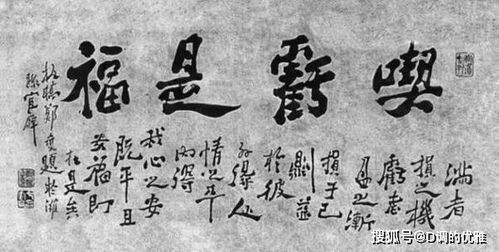 喫虧是福
滿者
損之機
虧者
盈之漸
損于己
則益
於彼
外得人
情之平
內得
我心之安
既平且
安福即
在是矣
板橋鄭燮題於濰
縣官廨
搜狐号@D调的优雅